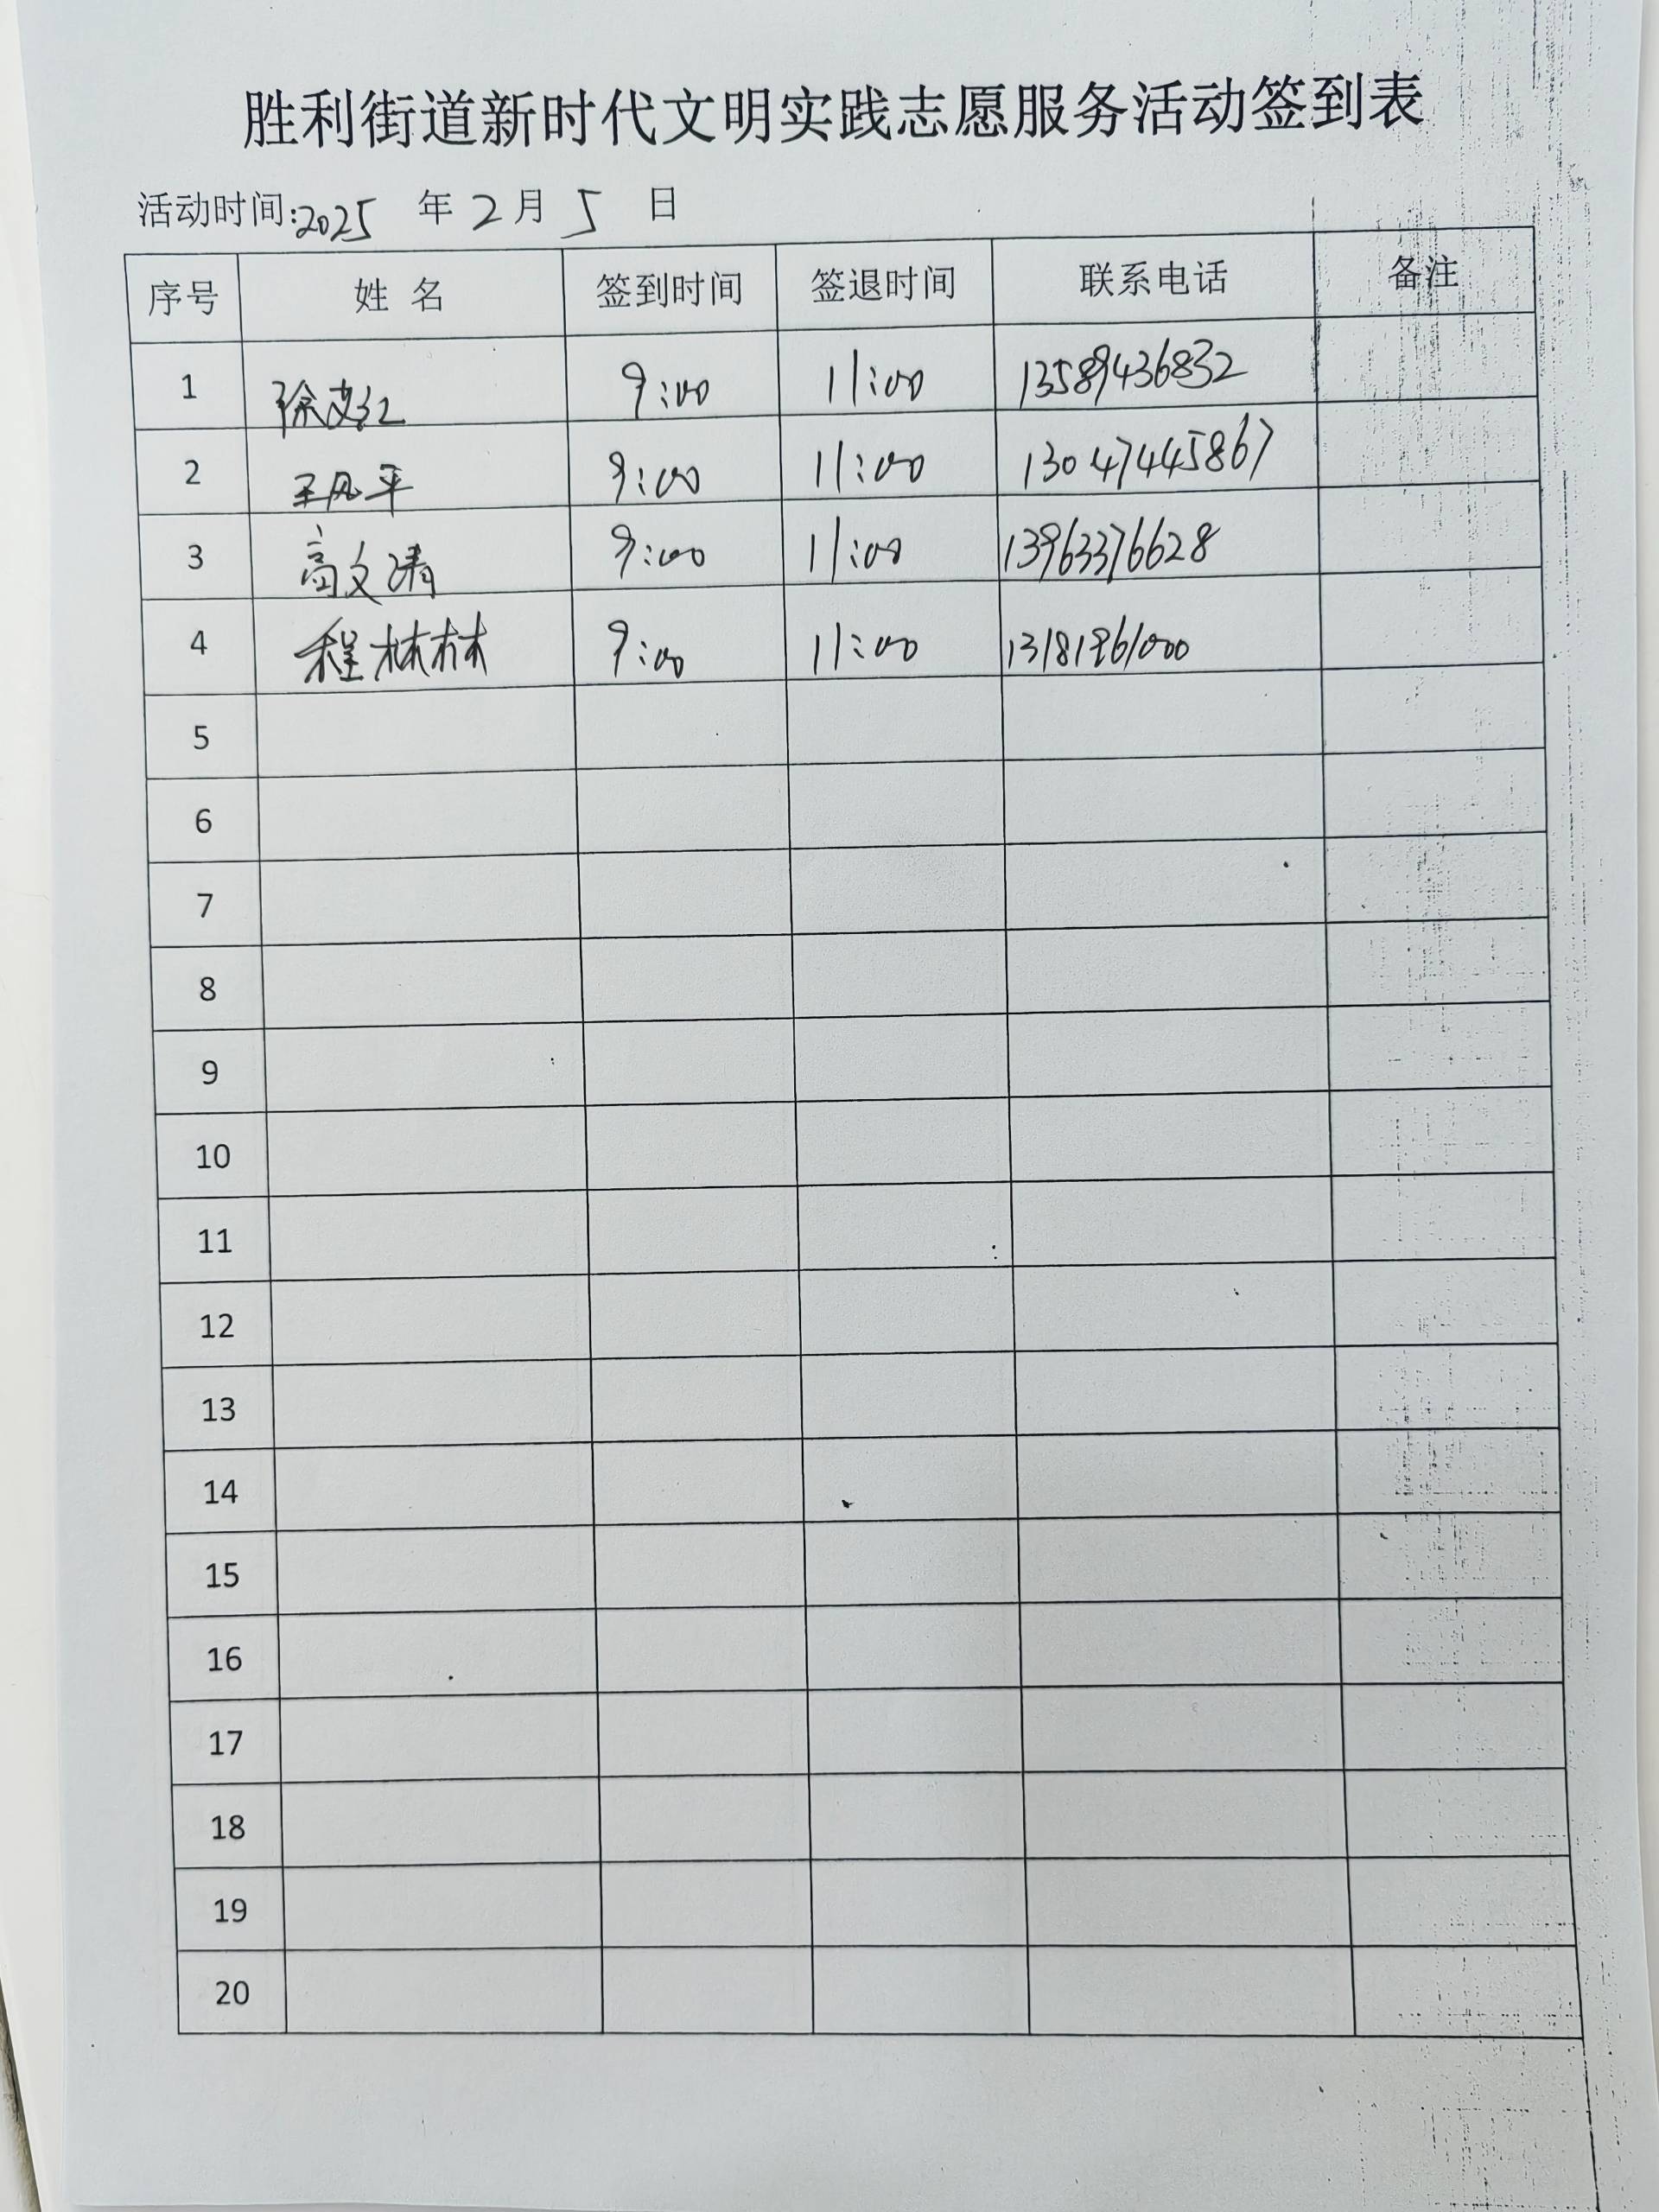 胜利街道新时代文明实践志愿服务活动签到表
活动时间:2025 年 2 月 5 日
序号 姓 名 签到时间 签退时间 联系电话 备注
1 徐艾红 9:00 11:00 13589436832
2 王凡平 9:00 11:00 13047445867
3 高文清 9:00 11:00 13963376628
4 程林林 9:00 11:00 13181961000
5
6
7
8
9
10
11
12
13
14
15
16
17
18
19
20